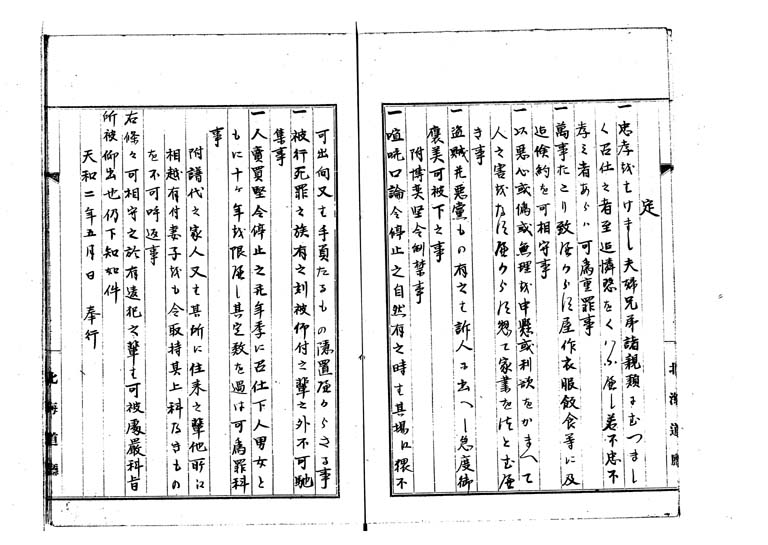 定
一忠孝をはけまし夫婦兄弟諸親類にむつましく
召仕之者至迄憐愍をくはふへし若不忠不
孝之者あらハ可為重罪事
一萬事おこり致へからす屋作衣服飲食等に及
迄倹約を可相守事
一以悪心或偽或無理或申懸或利欲をかまへて
人之害或なすへからす惣て家業をつとむへ
き事
一盗賊并悪黨もの有之は訴人に出へし急度御
褒美可被下之事
附博奕堅令制禁事
一喧𠵅口論令停止之自然有之時は其場江猥不
可出向又は手負たるもの隠置へからさる事
一被行死罪之族有之刻被仰付之輩之外不可馳
集事
一人賣買堅令停止之并年季に召仕下人男女と
もに十ヶ年を限へし其定数を過は可為罪科
事
附譜代之家人又は其所に住来之輩他所江
相越有付妻子をも令取持其上科なきもの
を不可呼返事
右條々可相守之於有違犯之輩は可被處嚴科旨
所被仰出也仍下知如件
天和二年五月日 奉行
北海道廳
北海道廳